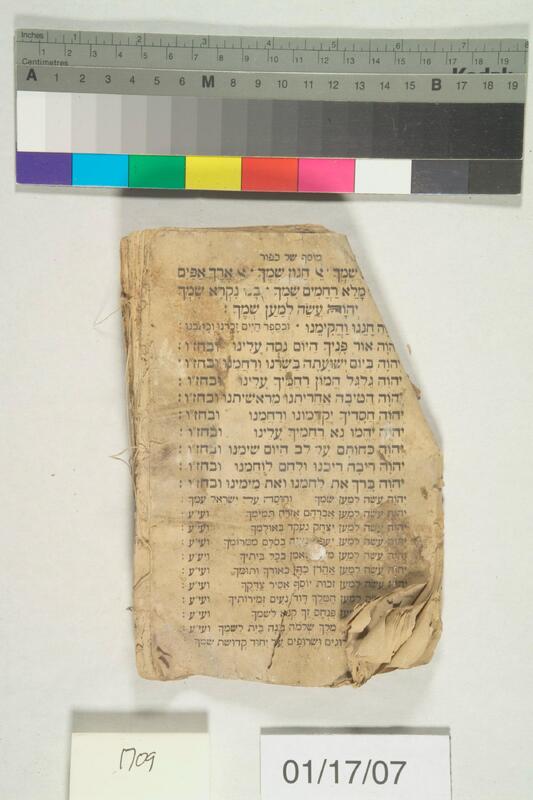 Inches 1 2 3 4 5 6 7 8
Centimetres
A 1 2 3 4 5 6 M 8 9 10 11 12 13 14 15 B 17 18 19
Kodak
מוסף של כפור
שמך חנון שמך ארך אפים
מלא רחמים שמך נקרא שמך
יהוה עשה למען שמך :
חננו והקימנו · ובספר חיים זכרנו וכתבנו :
אור פניך היום נסה עלינו ובחו״ו :
יהוה ביום ישועתה בשרנו ורחמנו ובחו״ו :
יהוה גלגל המון רחמיך עלינו ובחו״ו :
יהוה הטיבה אחריתנו מראשיתנו ובחו״ו :
יהוה חסדיך יקדמונו ורחמנו ובחו״ו :
יהוה יהמו נא רחמיך עלינו ובחו״ו :
יהוה כחותם על לב היום שימנו ובחו״ו :
יהוה ריבה ריבנו ולחם לוחמנו ובחו״ו :
יהוה ברך את לחמנו ואת מימינו ובחו״ו :
יהוה עשה למען שמך וחוסה על ישראל עמך :
יהוה עשה למען אברהם אזרח תמימך ועי״ע :
יהוה עשה למען יצחק נעקד באולמך ועי״ע :
יהוה עשה למען בסלם ממרומך ועי״ע :
יהוה עשה למען בכל ביתיך ועי״ע :
יהוה עשה למען אהרן כהן כאורך ותומך ועי״ע :
יהוה עשה למען זכות יוסף אסיר צדקך ועי״ע :
עשה למען המלך דוד נעים זמירותיך ועי״ע :
פנחס קנא לשמך ועי״ע :
מלך שלמה בנה בית לשמך ועי״ע :
ושרופים על יחוד קדושת שמך
1709
01/17/07